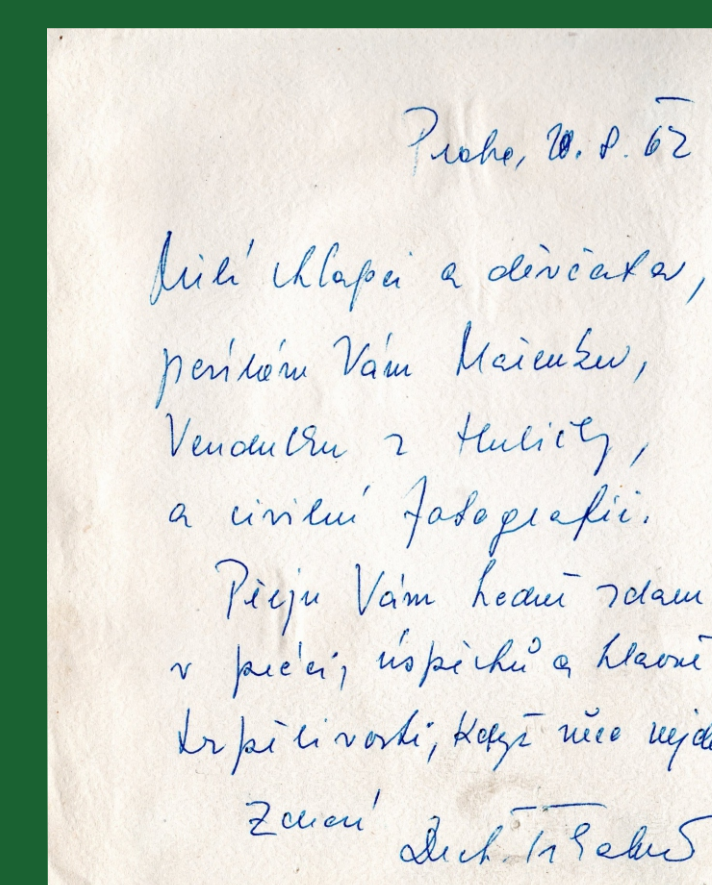 Praha, 20. 8. 62
Milí chlapci a děvčata,
posílám Vám Mařenku,
Vendulku z Hubičky,
a civilní fotografii.
Přeju Vám hodně zdaru
v práci, úspěchů a hlavně
trpělivosti, když něco nejde
Zdraví Drah. Tikalová